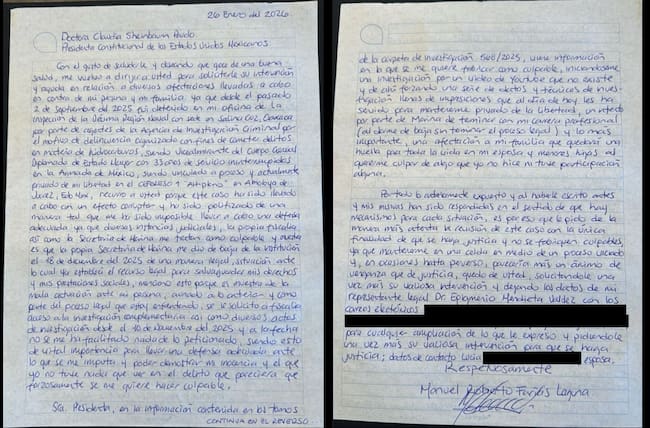 26 Enero del 2026.
Doctora Claudia Sheinbaum Pardo.
Presidenta Constitucional de los Estados Unidos Mexicanos.
Con el gusto de saludarle y deseando que goce de una buena
salud, me vuelvo a dirigir a usted para solicitarle su intervención
y ayuda en relación a diversas afectaciones llevadas a cabo
en contra de mi persona y mi familia, ya que desde el pasado
2 de septiembre del 2025 fui detenido en mi oficina de la
Inspección de la Décima Región Naval con sede en Salina Cruz, Oaxaca
por parte de agentes de la Agencia de Investigación Criminal por
el motivo de delincuencia organizada con fines de cometer delitos
en materia de hidrocarburos, siendo Vicealmirante del Cuerpo General
Diplomado de Estado Mayor con 33 años de servicio ininterrumpidos
en la Armada de México, siendo vinculado a proceso y actualmente
privado de mi libertad en el CEFERESO 1 "Altiplano" en Almoloya de
Juárez, Edo. Mex, recurro a usted porque este caso ha sido llevado
a cabo con un efecto corruptor y ha sido politizado de una
manera tal que me ha sido imposible llevar a cabo una defensa
adecuada ya que diversas instancias judiciales, la propia fiscalía
así como la Secretaría de Marina me tachan como culpable y muestra
es que la propia Secretaría de Marina me dio de baja de la institución
el 16 de diciembre del 2025 de una manera ilegal, situación ante
lo cual ya establecí el recurso legal para salvaguardar mis derechos
y mis prestaciones sociales, menciono esto porque es muestra de la
mala actuación ante mi persona, aunado a lo anterior y como
parte del proceso legal que estoy enfrentando, se le solicitó a fiscalía
acceso a la investigación complementaria así como diversos actos
de investigación desde el 10 de Noviembre del 2025 y a la fecha
no se me ha facilitado nada de lo peticionado, siendo esto
de vital importancia para llevar una defensa adecuada ante
lo que se me imputa y poder demostrar mi inocencia y el que
yo no tuve nada que ver en el delito que pareciera que
forzosamente se me quiere hacer culpable.
Sra. Presidenta, en la información contenida en los tomos
CONTINUA EN EL REVERSO.
de la carpeta de investigación 568/2025, viene información
en la que se me quiere fabricar como culpable, iniciándose
una investigación por un video de Youtube que no existe
y de ahí forzando una serie de datos y técnicas de inves-
tigación llenas de imprecisiones que al día de hoy les ha
servido para mantenerme privado de la libertad, un intento
por parte de Marina de terminar con mi carrera profesional
(al darme de baja sin terminar el proceso legal) y lo más
importante, una afectación a mi familia que quedará una
huella para toda la vida en mi esposa y menores hijos al
quererme culpar de algo que yo no hice ni tuve participación
alguna.
Por todo lo anteriormente expuesto y al haberle escrito antes
y mis misivas han sido respondidas en el sentido de que hay
mecanismos para cada situación, es por eso que le pido de la
manera más atenta la revisión de este caso con la única
finalidad de que se haga justicia y no se fabriquen culpables,
ya que mantenerme en una celda en medio de un proceso viciado
y, en ocasiones hasta perverso, parecería más un ánimo de
venganza que de justicia, quedo de usted, solicitándole una
vez más su valiosa intervención y dejando los datos de mi
representante legal Dr. Epigmenio Mendieta Valdez con los
correos electrónicos
para cualquier ampliación de lo que le expreso y pidiéndole
una vez más su valiosa intervención para que se haga
justicia; datos de contacto Lucía esposa.
Respetuosamente
Manuel Roberto Farías Laguna